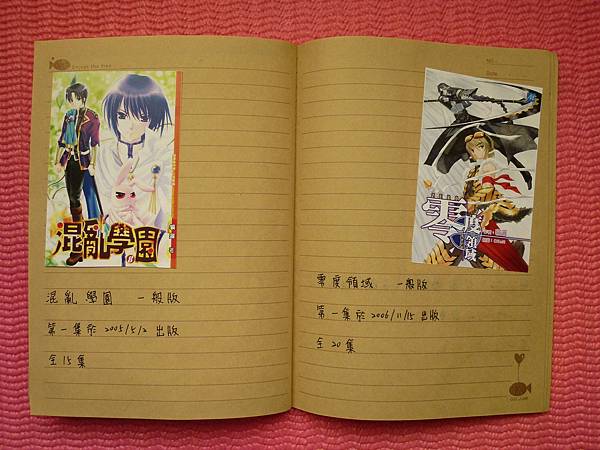 混亂學園
混亂學園 一般版
第一集於 2005/5/2 出版
全 15 集
零度領域
零度領域 一般版
第一集於 2006/11/15 出版
全 20 集